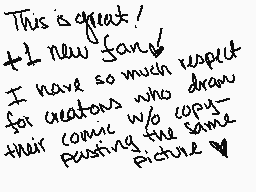 This is great!
+1 new fan↓
I have so much respect
for creators who draw
their comic w/o copy-
pasting the same
picture ♥